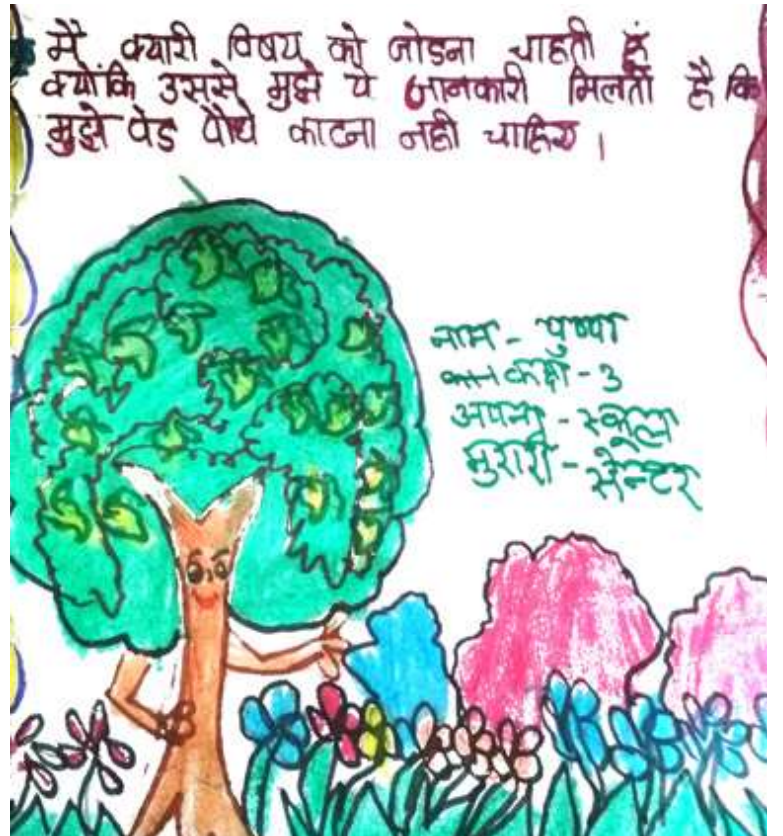 मै क्यारी विषय को जोडना चाहती हूं
क्योंकि उससे मुझे ये जानकारी मिलती है कि
मुझे पेड पौधे काटना नही चाहिए ।
नाम - पुष्पा
कक्षा - 3
अपना - स्कूल
मुरारी - सेन्टर